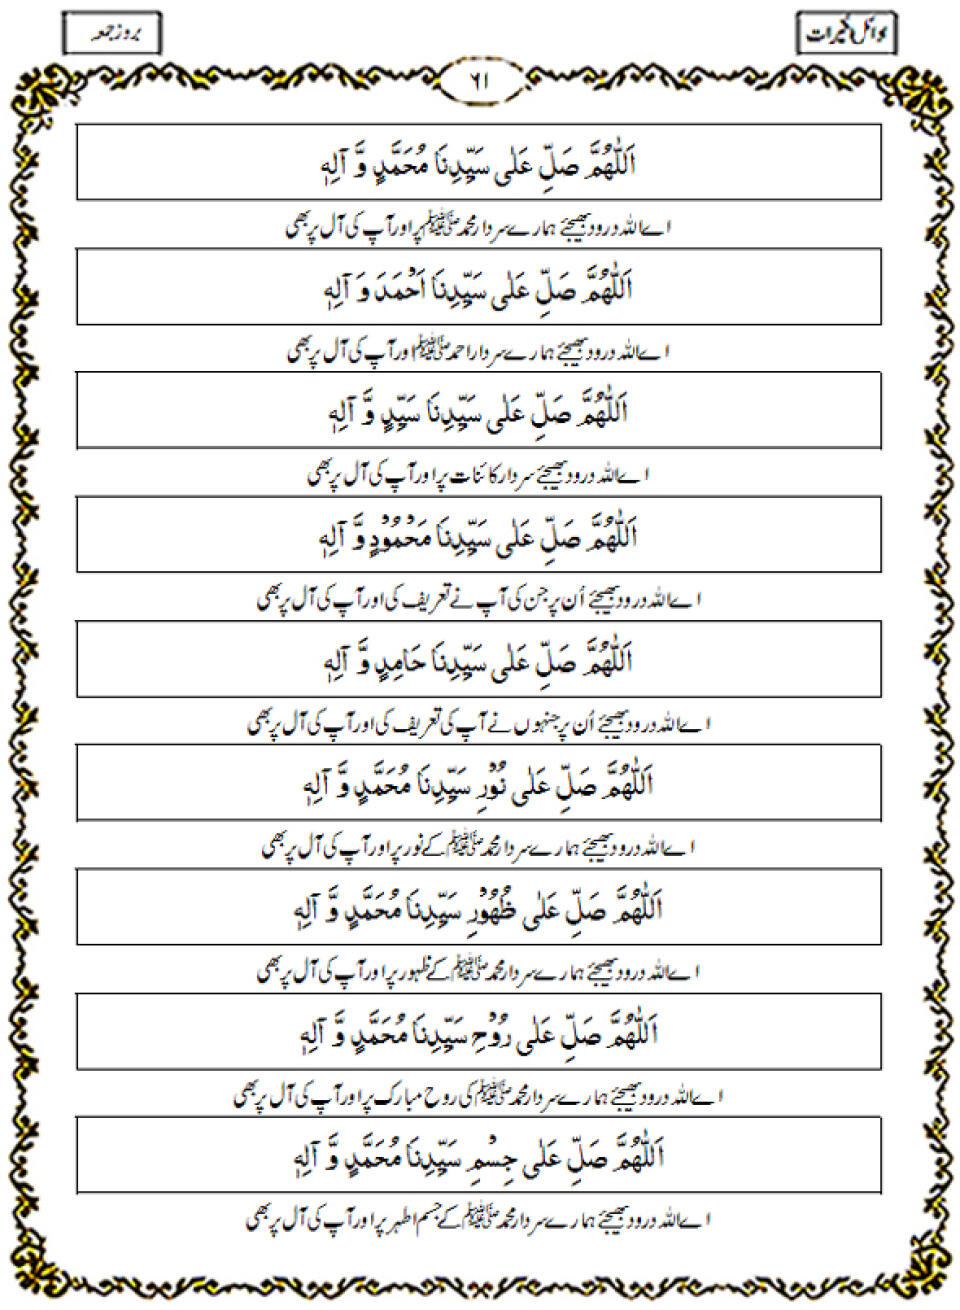 بروز جمعہ
٦١
اَللّٰهُمَّ صَلِّ عَلٰى سَيِّدِنَا مُحَمَّدٍ وَّ آلِهٖ
اے اللہ درود بھیجئے ہمارے سردار محمد ﷺ پر اور آپ کی آل پر بھی
اَللّٰهُمَّ صَلِّ عَلٰى سَيِّدِنَا اَحْمَدَ وَ آلِهٖ
اے اللہ درود بھیجئے ہمارے سردار احمد ﷺ اور آپ کی آل پر بھی
اَللّٰهُمَّ صَلِّ عَلٰى سَيِّدِنَا سَيِّدٍ وَّ آلِهٖ
اے اللہ درود بھیجئے سردار کائنات پر اور آپ کی آل پر بھی
اَللّٰهُمَّ صَلِّ عَلٰى سَيِّدِنَا مَحْمُوْدٍ وَّ آلِهٖ
اے اللہ درود بھیجئے اُن پر جن کی آپ نے تعریف کی اور آپ کی آل پر بھی
اَللّٰهُمَّ صَلِّ عَلٰى سَيِّدِنَا حَامِدٍ وَّ آلِهٖ
اے اللہ درود بھیجئے اُن پر جنہوں نے آپ کی تعریف کی اور آپ کی آل پر بھی
اَللّٰهُمَّ صَلِّ عَلٰى نُوْرِ سَيِّدِنَا مُحَمَّدٍ وَّ آلِهٖ
اے اللہ درود بھیجئے ہمارے سردار محمد ﷺ کے نور پر اور آپ کی آل پر بھی
اَللّٰهُمَّ صَلِّ عَلٰى ظُهُوْرِ سَيِّدِنَا مُحَمَّدٍ وَّ آلِهٖ
اے اللہ درود بھیجئے ہمارے سردار محمد ﷺ کے ظہور پر اور آپ کی آل پر بھی
اَللّٰهُمَّ صَلِّ عَلٰى رُوْحِ سَيِّدِنَا مُحَمَّدٍ وَّ آلِهٖ
اے اللہ درود بھیجئے ہمارے سردار محمد ﷺ کی روح مبارک پر اور آپ کی آل پر بھی
اَللّٰهُمَّ صَلِّ عَلٰى جِسْمِ سَيِّدِنَا مُحَمَّدٍ وَّ آلِهٖ
اے اللہ درود بھیجئے ہمارے سردار محمد ﷺ کے جسم اطہر پر اور آپ کی آل پر بھی